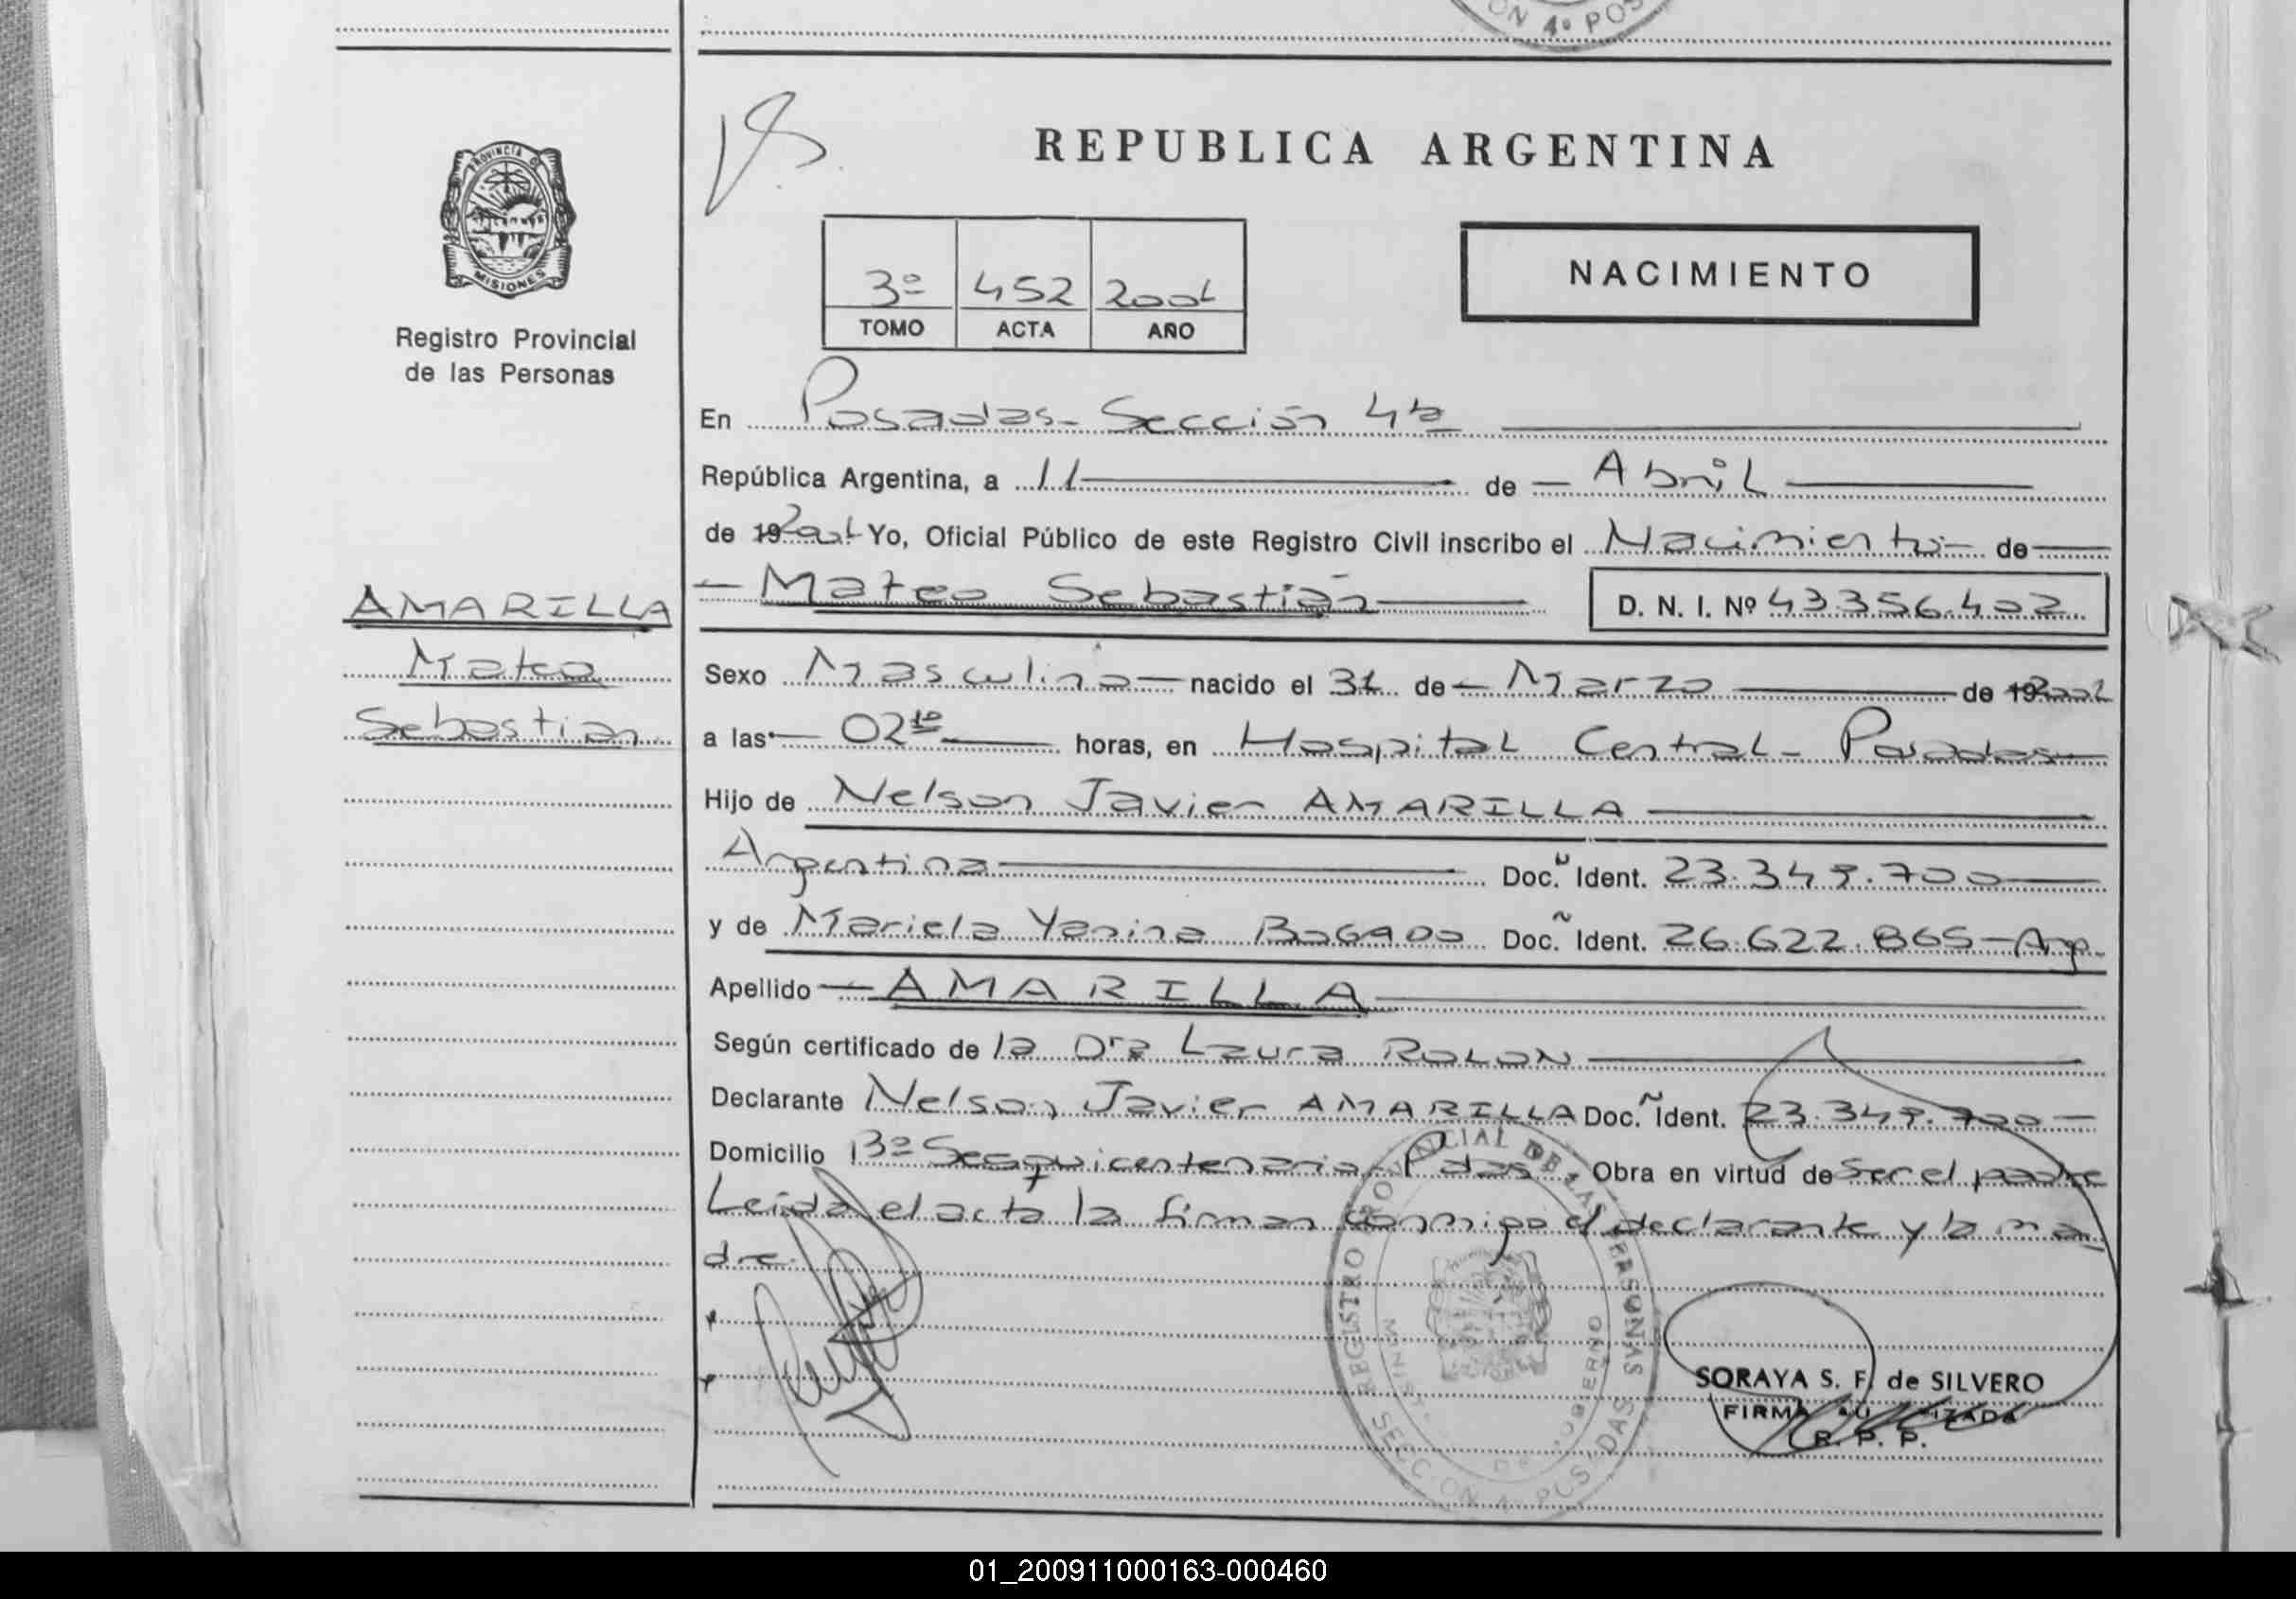 ON 4º POS
REPUBLICA ARGENTINA
PROVINCIA DE
MISIONES
Registro Provincial
de las Personas
3º 452 2001
TOMO ACTA AÑO
NACIMIENTO
En Posadas - Sección 4ta
República Argentina, a 11 de Abril
de 19 2001 Yo, Oficial Público de este Registro Civil inscribo el Nacimiento de
Mateo Sebastián D. N. I. Nº 43.356.402
AMARILLA
Mateo
Sebastian
Sexo Masculino nacido el 31 de Marzo de 19 2001
a las 02 10 horas, en Hospital Central - Posadas
Hijo de Nelson Javier AMARILLA
Argentina Doc. Ident. 23.349.700
y de Mariela Yanina BOGADO Doc. Ident. 26.622.865 - Arg.
Apellido AMARILLA
Según certificado de la Dra Laura ROLON
Declarante Nelson Javier AMARILLA Doc. Ident. 23.349.700
Domicilio Bº Sesquicentenario - Pdas Obra en virtud de ser el padre
Leída el acta la firman conmigo el declarante y la ma
dre.
REGISTRO PROVINCIAL DE LAS PERSONAS
SECCION 4º POSADAS
SORAYA S. F. de SILVERO
R. P. P.
01_200911000163-000460